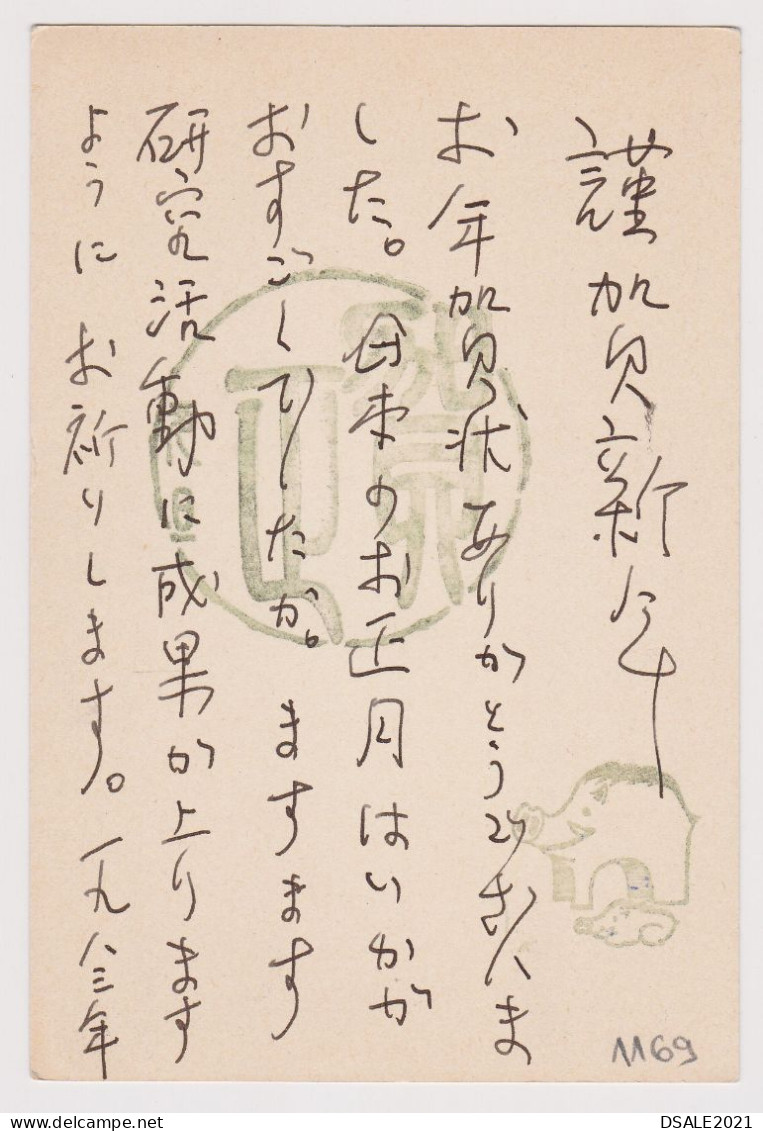 謹加貝新年
お年加貝状ありがとうございま
した。日本のお正月はいかが
おすごしでしたか。ますます
研究活動に成果が上ります
ように お祈りします。一九八三年
1169
DSALE2021